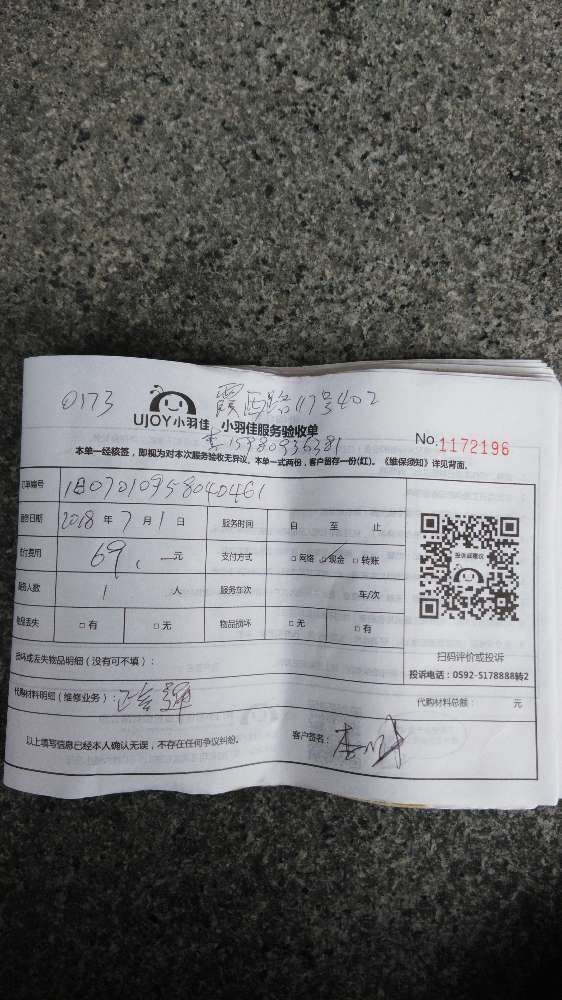 0173 霞西路117号402
UJOY小羽佳 小羽佳服务验收单
李15980936381
No. 1172196
本单一经核签，即视为对本次服务验收无异议。本单一式两份，客户留存一份(红)。《维保须知》详见背面。
订单编号
2018年7月1日 服务时间 自 至 止
69.一元 支付方式 □网络 □现金 □转账
服务人数 1人 服务车次 车/次
物品丢失 □有 □无 物品损坏 □无 □有
扫码评价或投诉
损坏或丢失物品明细（没有可不填）：
投诉电话：0592-5178888转2
代购材料明细（维修业务）：
代购材料总额： 元
以上填写信息已经本人确认无误，不存在任何争议纠纷。
客户签名：